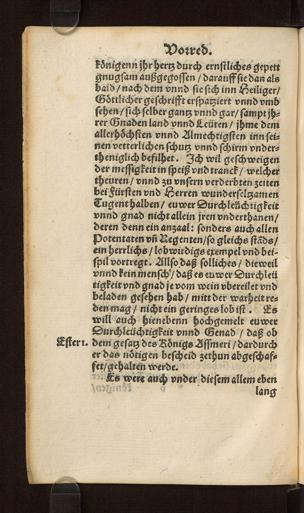 Vorred.
königenn jhr hertz durch ernstliches gepett
gnugsam außgegossen / darauff sie dan als
bald / nach dem vnnd sie sich inn Heiliger /
Göttlicher geschrifft erspatziert vnnd vmb
sehen / sich selber gantz vnnd gar / sampt jh-
rer Gnaden land vnnd Leüten / jhme dem
allerhöchsten vnnd Almechtigsten inn sei-
nen vetterlichen schutz vnnd schirm vnder-
theniglich befilhet. Ich wil geschweigen
der messigkeit in speiß vnd tranck / welcher
theuren / vnnd zu vnsern verderbten zeiten
bei Fürsten vnd Herren wunderseltzamen
Tugent halben / euwer Durchleüchtigkeit
vnnd gnad nicht allein jren vnderthanen /
deren denn ein anzaal: sonders auch allen
Potentaten vñ Regenten / so gleichs stãds /
ein herrlichs / lobwirdigs exempel vnd bei-
spil vortregt. Allso daß solliches / dieweil
vnnd kein mensch / daß es euwer Durchleü
tigkeit vnd gnad je vom wein vbereilet vnd
beladen gesehen hab / mitt der warheit re-
den mag / nicht ein geringes lob ist. Es
will auch hienebenn hochgemelt euwer
Durchleüchtigkeit vnnd Genad / daß ob
Ester 1. dem gesatz des Königs Assueri / dardurch
er das nötigen bescheid zethun abgeschaf-
fet / gehalten werde.
Es were auch vnder diesem allem eben
lang